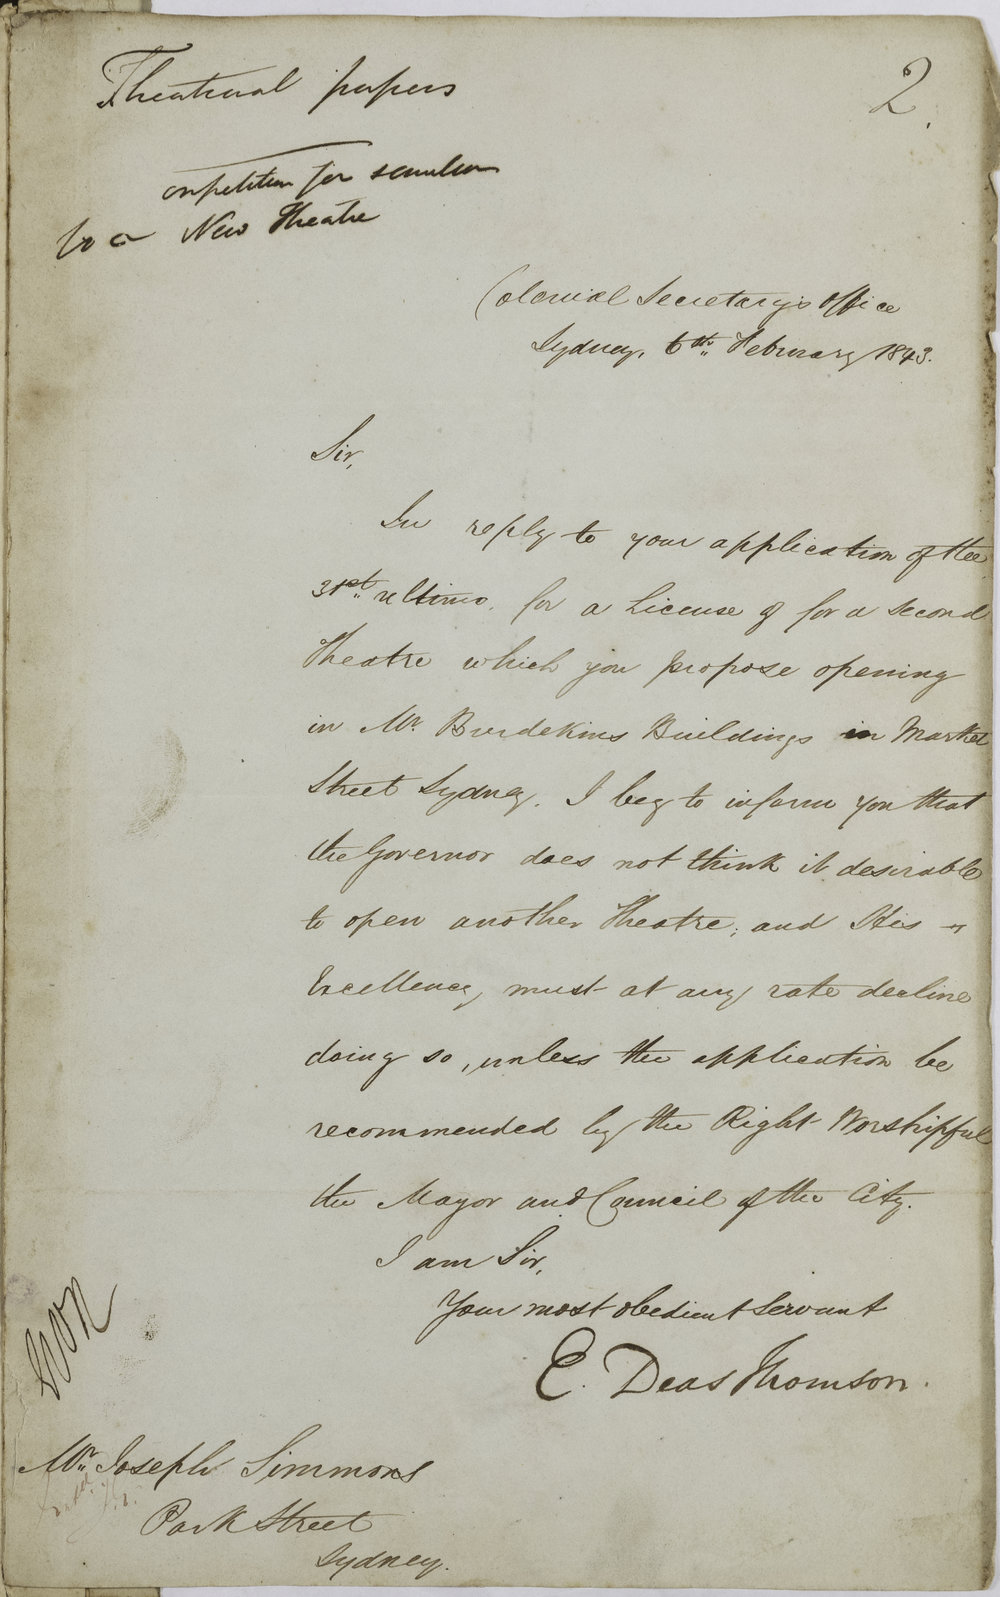 Theatrical papers
2.
on petition for
to a New Theatre
Colonial Secretary's Office
Sydney, 6th February 1843.
Sir,
In reply to your application of the
31st ultimo, for a License of for a second
Theatre which you propose opening
in Mr. Burdekins Buildings in Market
Street Sydney. I beg to inform you that
the Governor does not think it desirable
to open another Theatre; and His
Excellency, must at any rate decline
doing so, unless the application be
recommended by the Right Worshipful
the Mayor and Council of the City.
I am Sir,
Your most obedient Servant
E. Deas Thomson.
Mr. Joseph Simmons
Park Street
Sydney.